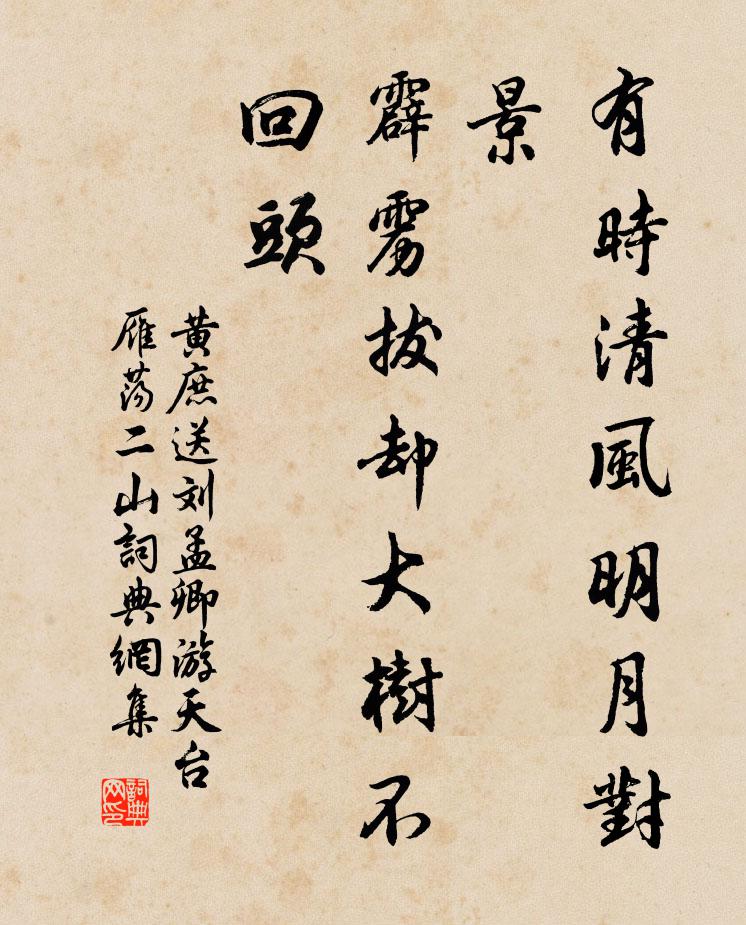 有時清風明月對
景
霹雳拔却大樹不
回頭
黄庶送刘孟卿游天台
雁荡二山詞典網集
詞典
网印